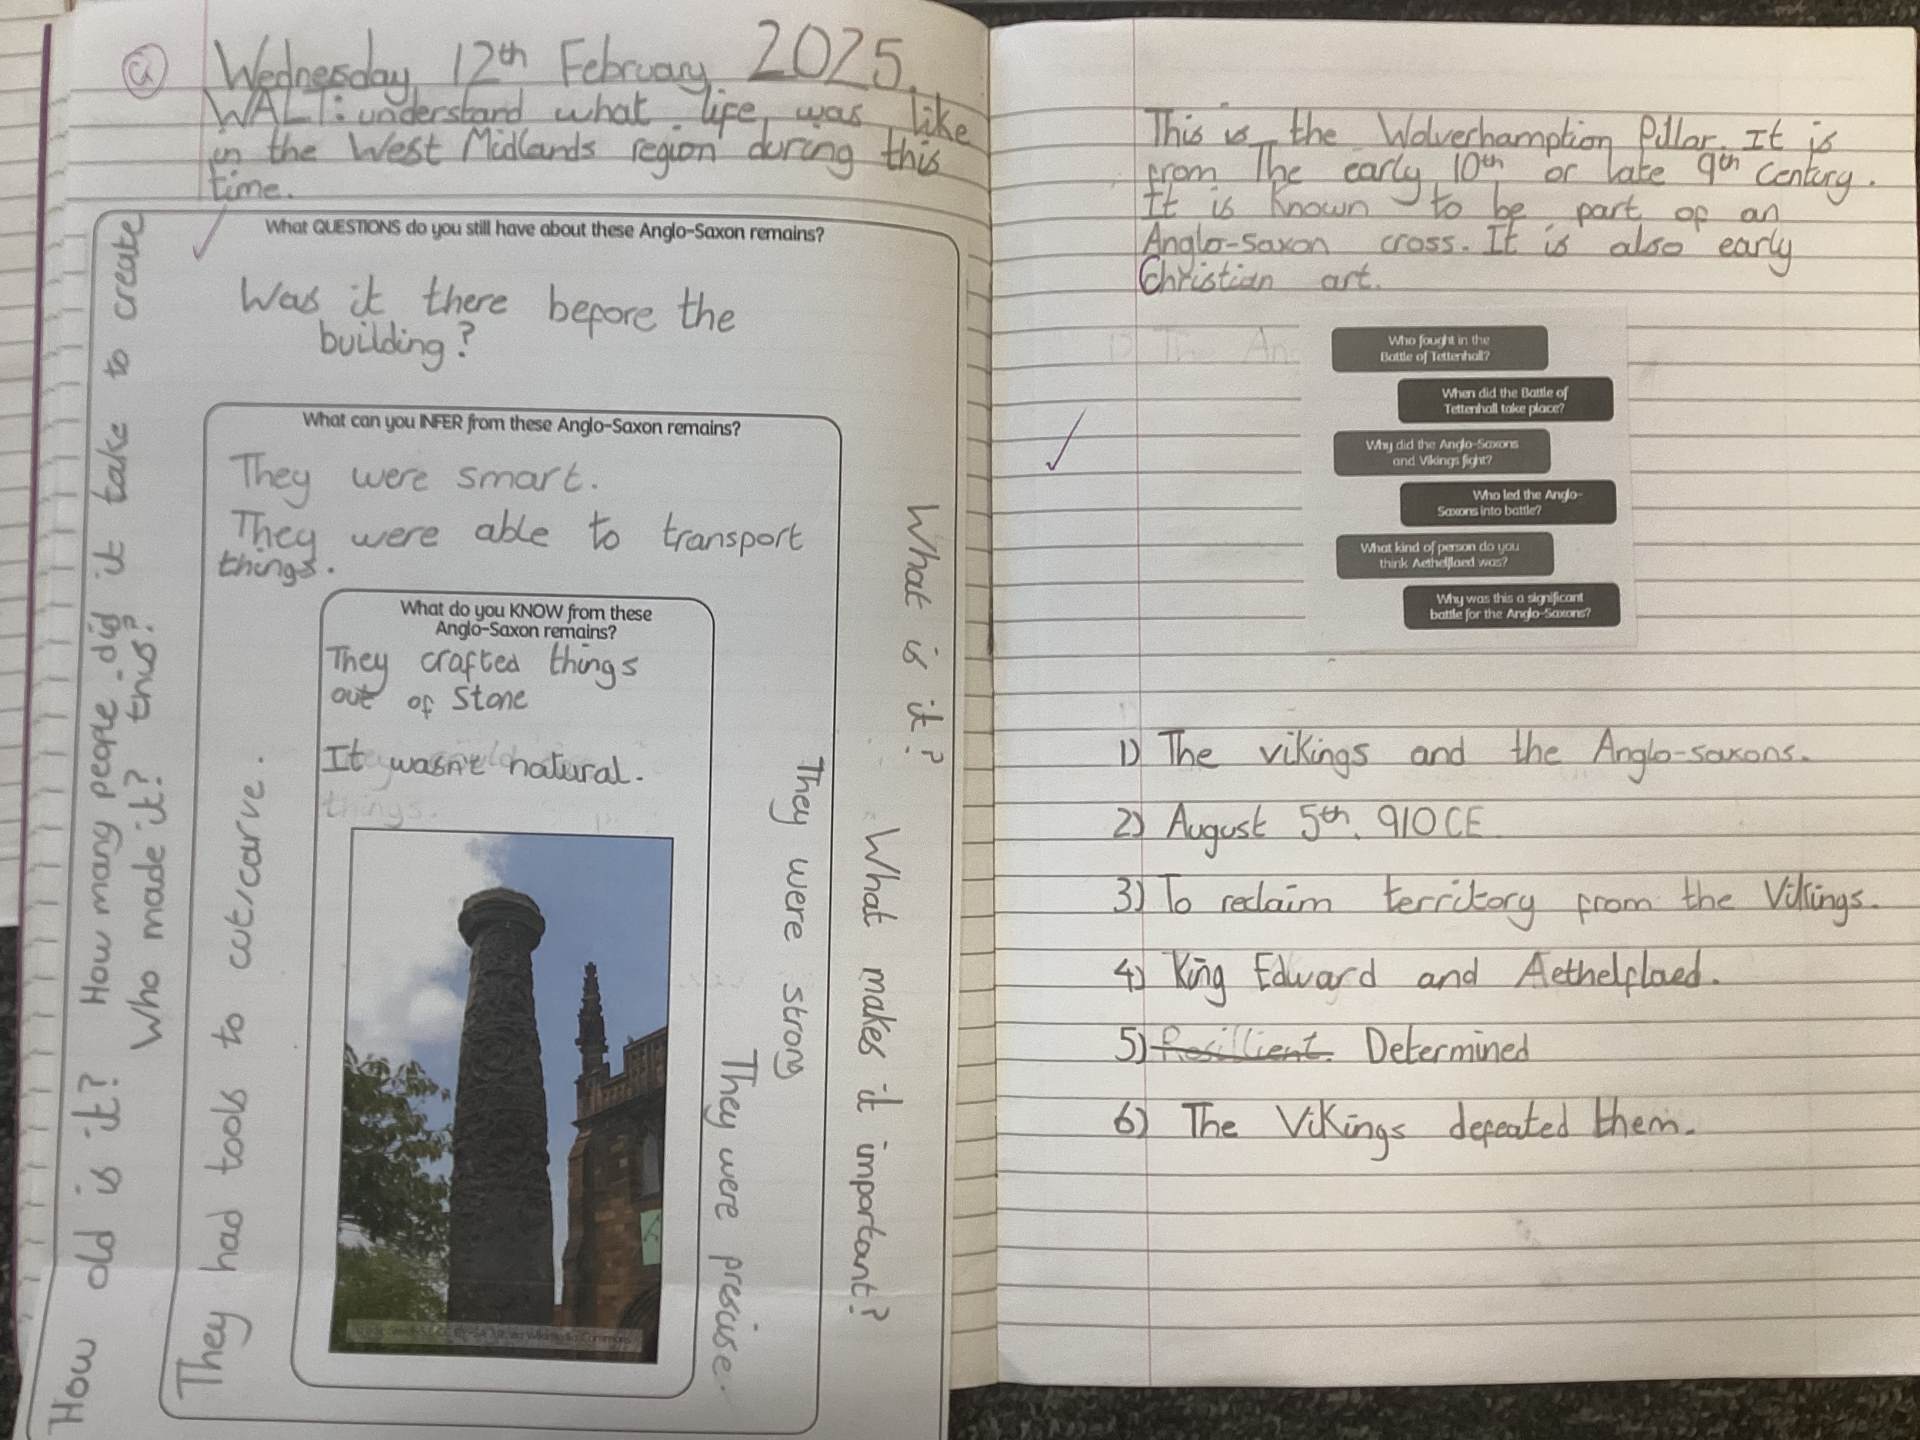 Wednesday 12th February 2025.
WALT: understand what life was like
in the West Midlands region during this
time.
What QUESTIONS do you still have about these Anglo-Saxon remains?
Was it there before the
building?
How old is it?
How many people did it take to create
this?
Who made it?
What is it?
What makes it important?
What can you INFER from these Anglo-Saxon remains?
They were smart.
They were able to transport
things.
They had tools to cut/carve.
They were strong
They were presise.
What do you KNOW from these
Anglo-Saxon remains?
They crafted things
out of Stone
It wasn't natural.
things.
This is the Wolverhamption Pillar. It is
from The early 10th or late 9th Century.
It is known to be part of an
Anglo-saxon cross. It is also early
Christian art.
Who fought in the
Battle of Tettenhall?
When did the Battle of
Tettenhall take place?
Why did the Anglo-Saxons
and Vikings fight?
Who led the Anglo-
Saxons into battle?
What kind of person do you
think Aethelflaed was?
Why was this a significant
battle for the Anglo-Saxons?
1) The vikings and the Anglo-saxons.
2) August 5th. 910CE
3) To reclaim territory from the Vikings.
4) King Edward and Aethelflaed.
5) Resillient. Determined
6) The Vikings defeated them.